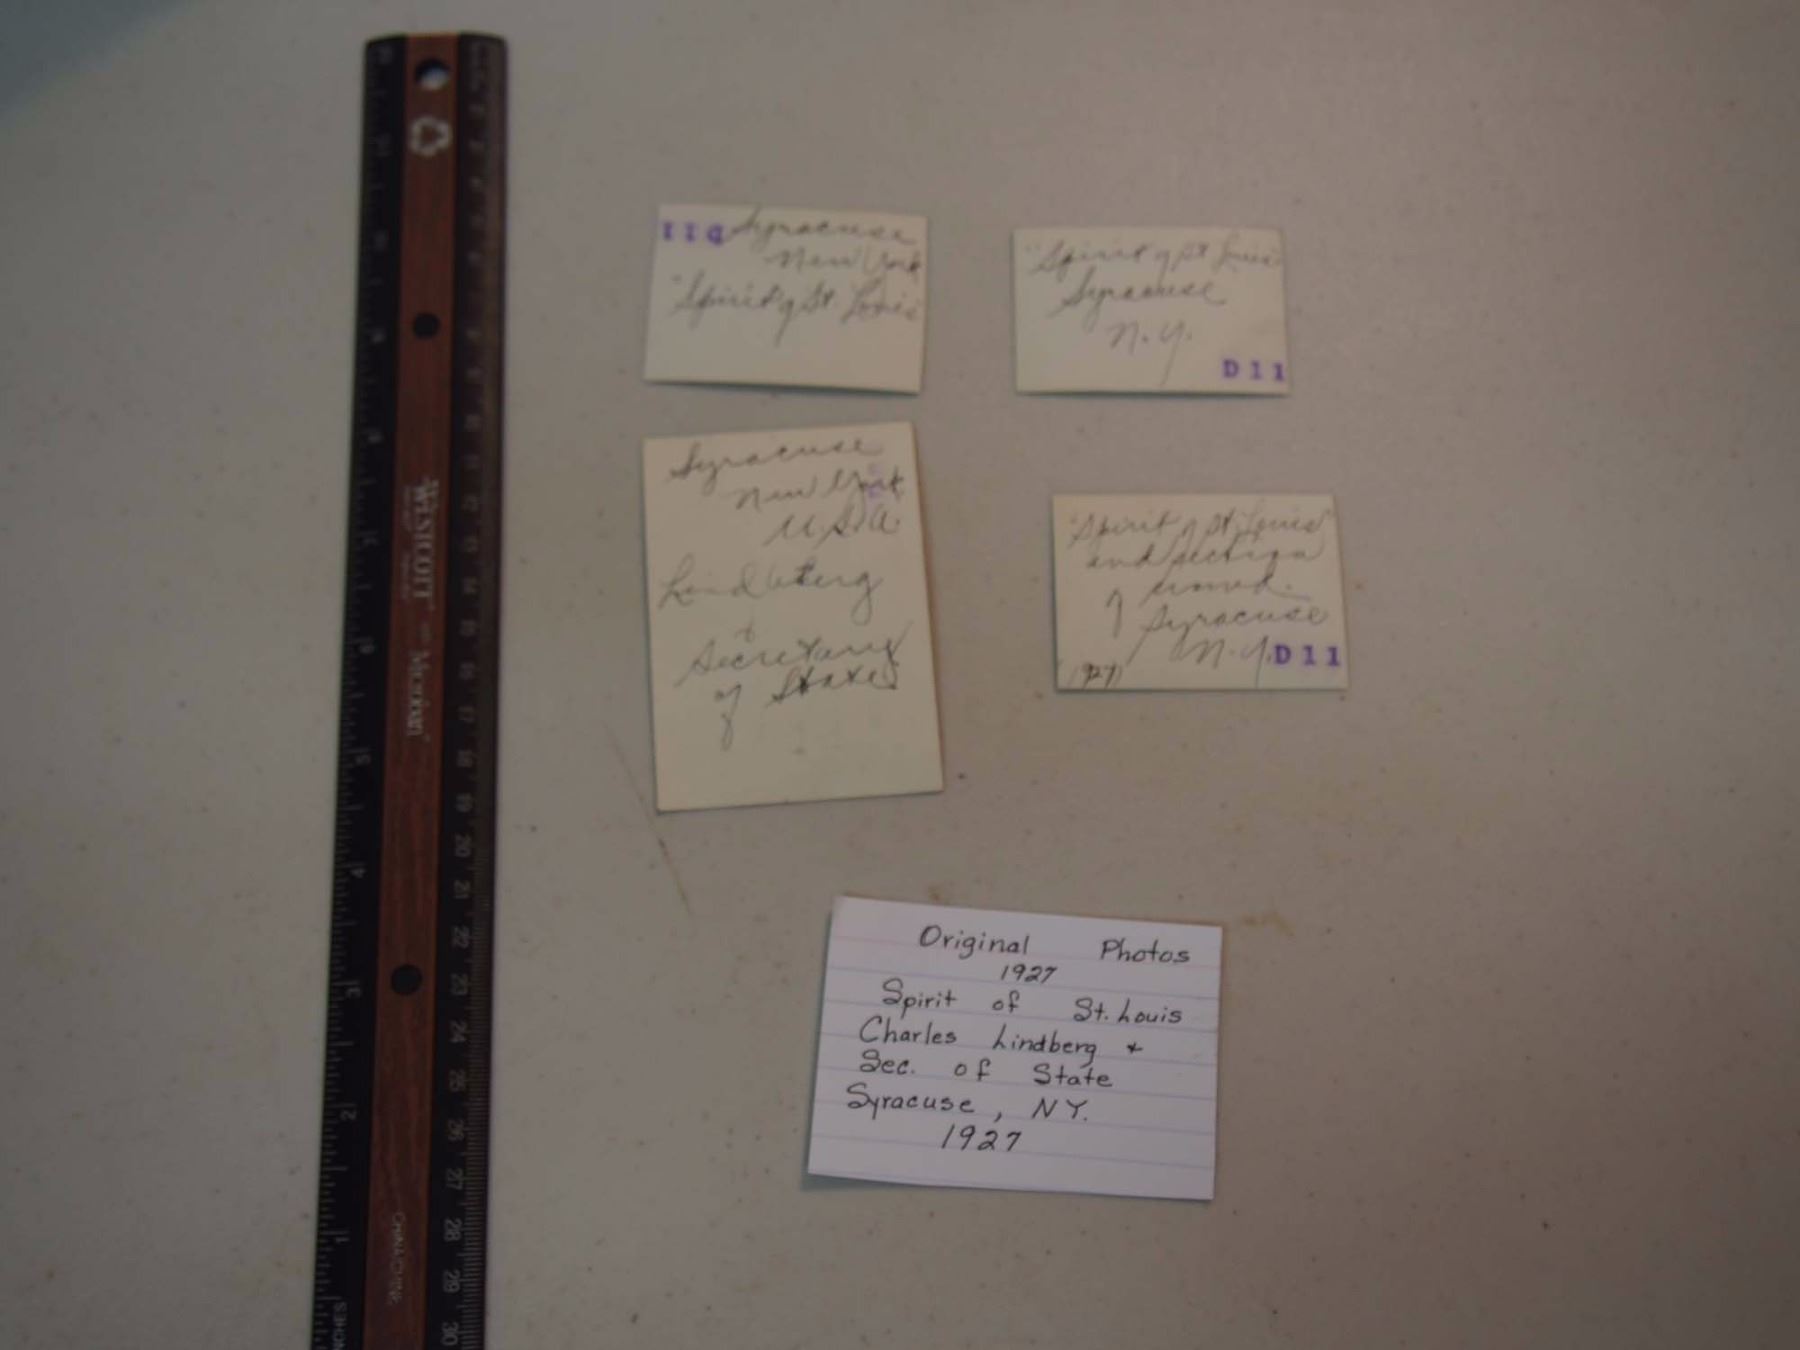 D11 Syracuse
New York
"Spirit of St. Louis"
"Spirit of St Louis"
Syracuse
N.Y.
D11
Syracuse
New York
U.S.A.
Lindberg
&
Secretary
of State
"Spirit of St. Louis"
and section
of crowd.
Syracuse
N.Y. D11
(1927)
Original Photos
1927
Spirit of St. Louis
Charles Lindberg &
Sec. of State
Syracuse, NY.
1927
WESTCOTT
CHINA/CHINE
INCHES
1
2
3
4
5
6
12
13
14
15
16
17
18
19
20
21
22
23
24
25
26
27
28
29
30